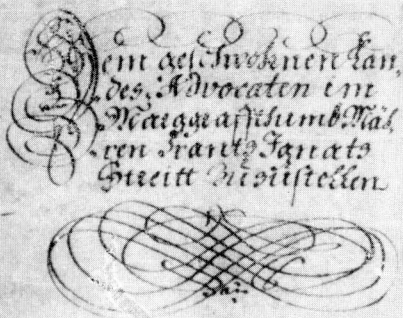 Dem geschwohnen Lan,
des Advocaten im
Marggraffthumb Mäh,
ren Frantz Ignats
Streitt Zuzustellen